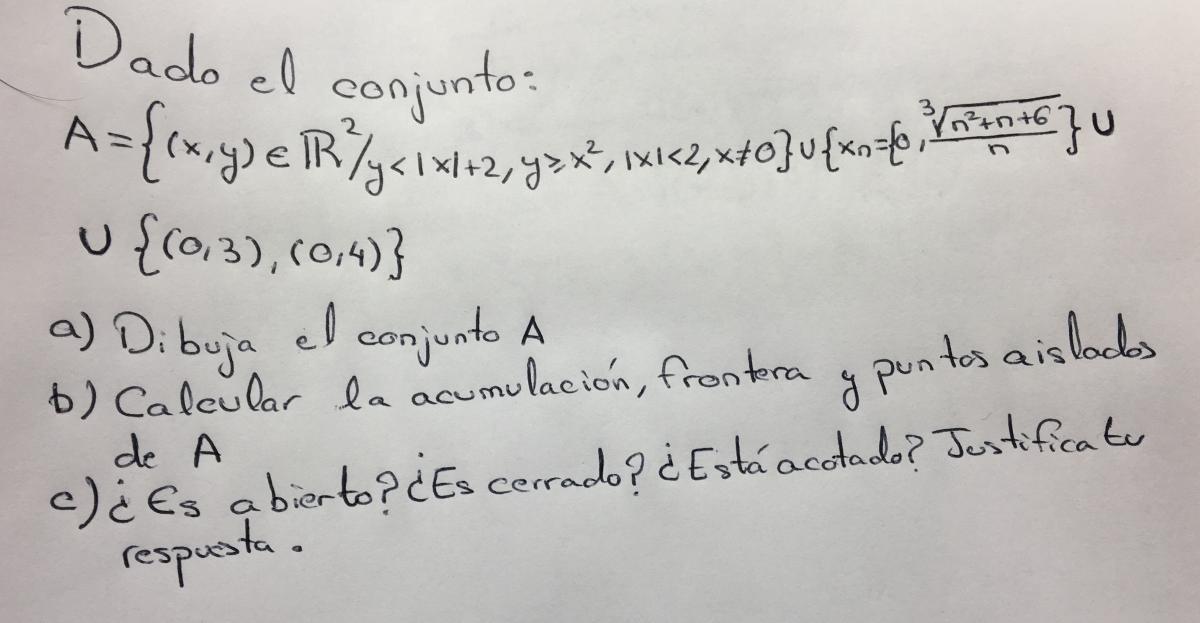 Dado el conjunto:
A={(x,y)∈ℝ²/y<|x|+2, y≥x², |x|<2, x≠0}∪{xₙ={0, ∛(n²+n+6)/n}∪
∪ {(0,3), (0,4)}
a) Dibuja el conjunto A
b) Calcular la acumulación, frontera y puntos aislados
de A
c) ¿Es abierto? ¿Es cerrado? ¿Está acotado? Justifica tu
respuesta.